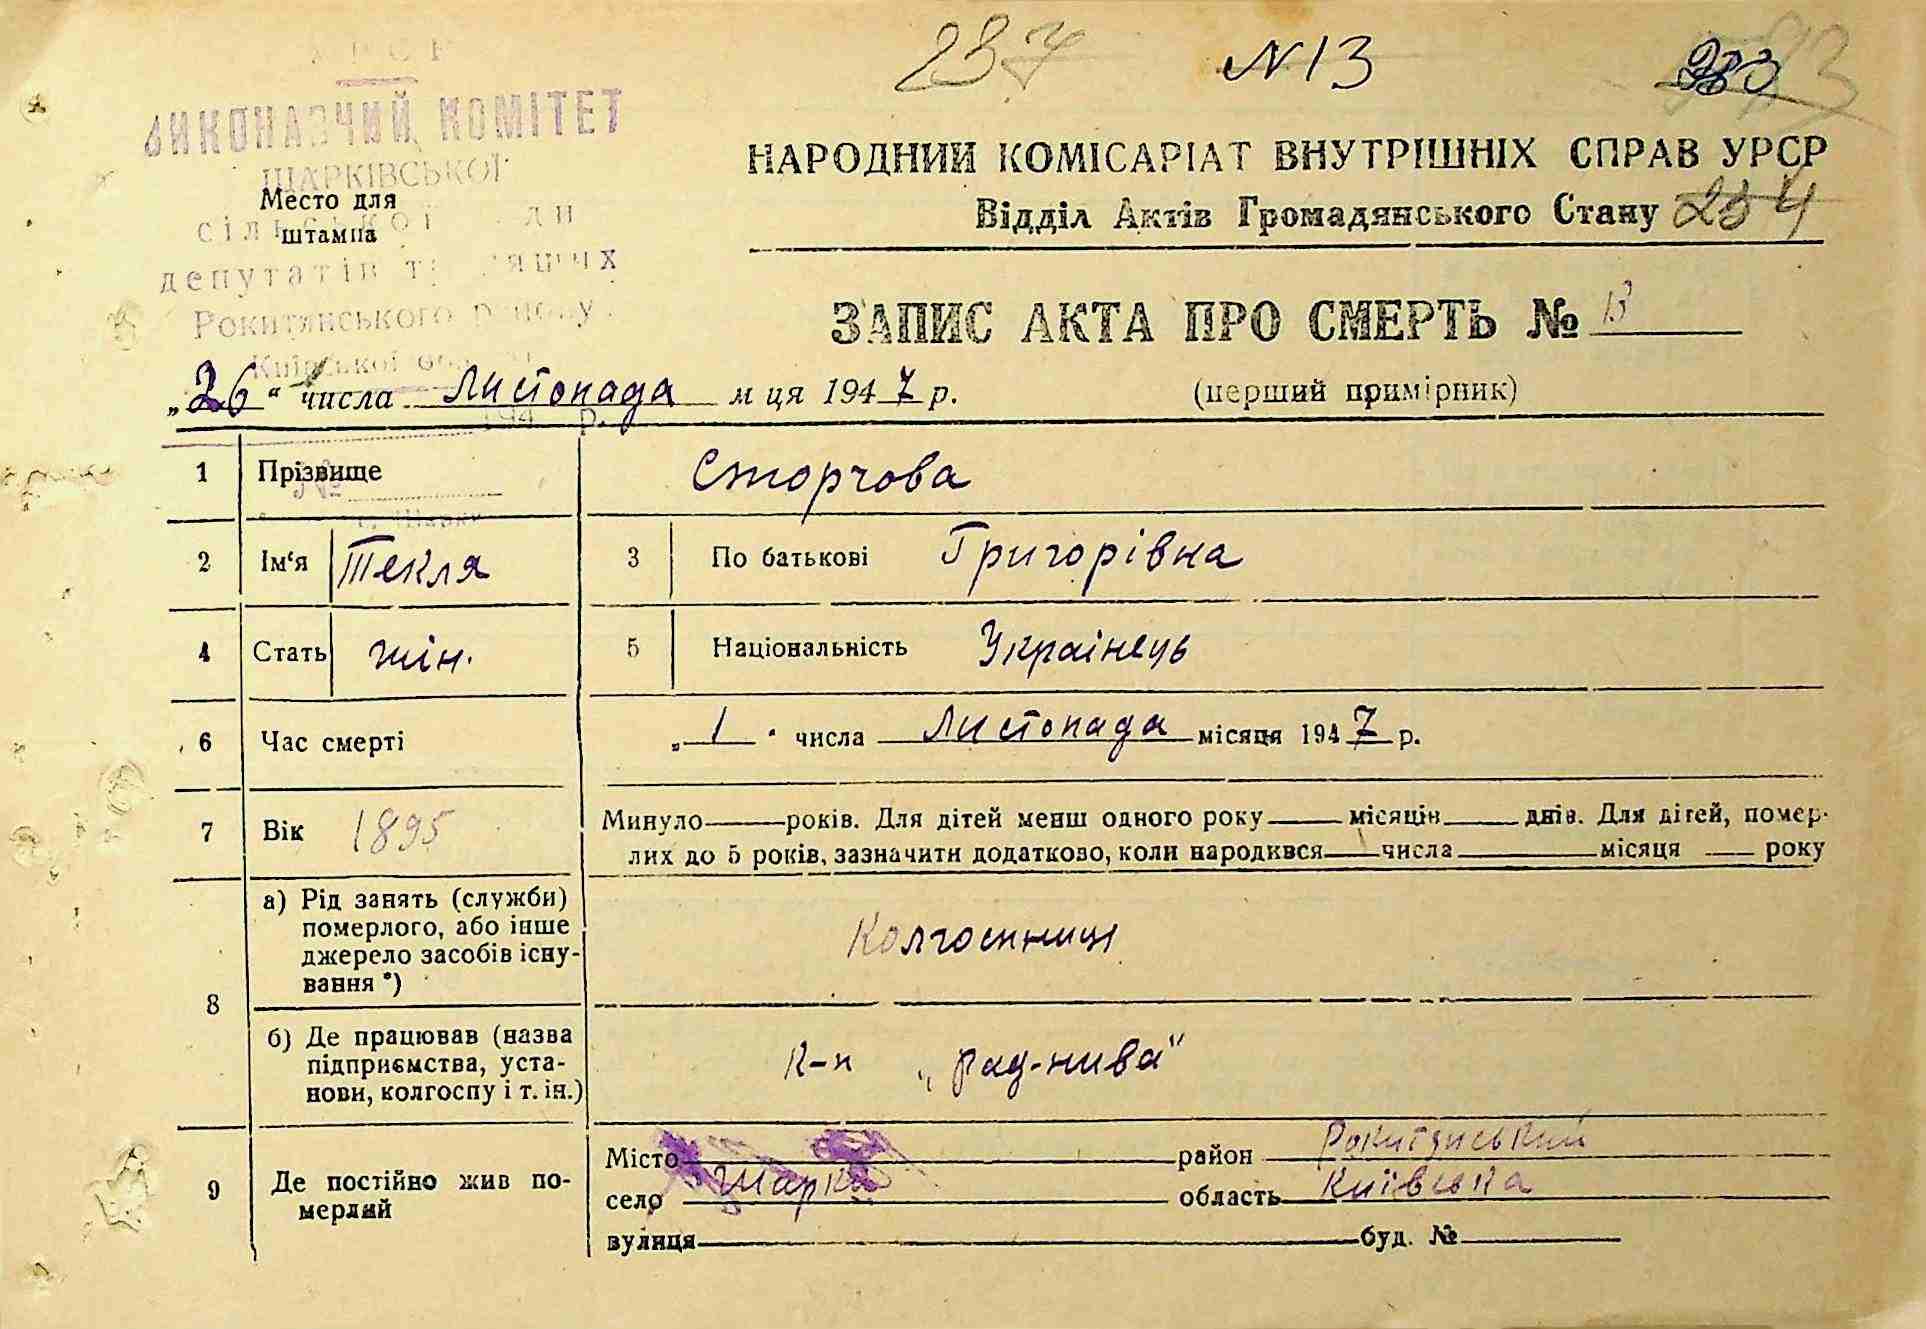 237 N 13
УРСР
ВИКОНАВЧИЙ КОМІТЕТ
ШАРКІВСЬКОЇ
Место для
штампа
депутатів
Рокитянського району
Київської
194 р.
НАРОДНИЙ КОМІСАРІАТ ВНУТРІШНІХ СПРАВ УРСР
Відділ Актів Громадянського Стану 234
ЗАПИС АКТА ПРО СМЕРТЬ № 13
„26“ числа Листопада м ця 1947 р. (перший примірник)
1 Прізвище Сторчова
2 Ім'я Текля 3 По батькові Григорівна
4 Стать жін. 5 Національність Українець
6 Час смерті „1“ числа Листопада місяця 1947 р.
7 Вік 1895 Минуло років. Для дітей менш одного року місяців днів. Для дітей, помер-
лих до 5 років, зазначити додатково, коли народився числа місяця року
8 а) Рід занять (служби)
померлого, або інше
джерело засобів існу-
вання *)
Колгосниця
б) Де працював (назва
підприємства, уста-
нови, колгоспу і т. ін.)
к-п „рад-нива"
9 Де постійно жив по-
мерлий
Місто район Рокитянський
село Шарки область Київська
вулиця буд. №